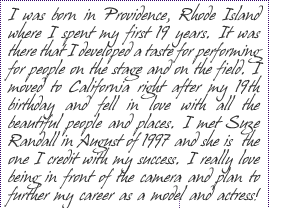 I was born in Providence, Rhode Island
where I spent my first 19 years. It was
there that I developed a taste for performing
for people on the stage and on the field. I
moved to California right after my 19th
birthday and fell in love with all the
beautiful people and places. I met Suze
Randall in August of 1997 and she is the
one I credit with my success. I really love
being in front of the camera and plan to
further my career as a model and actress!